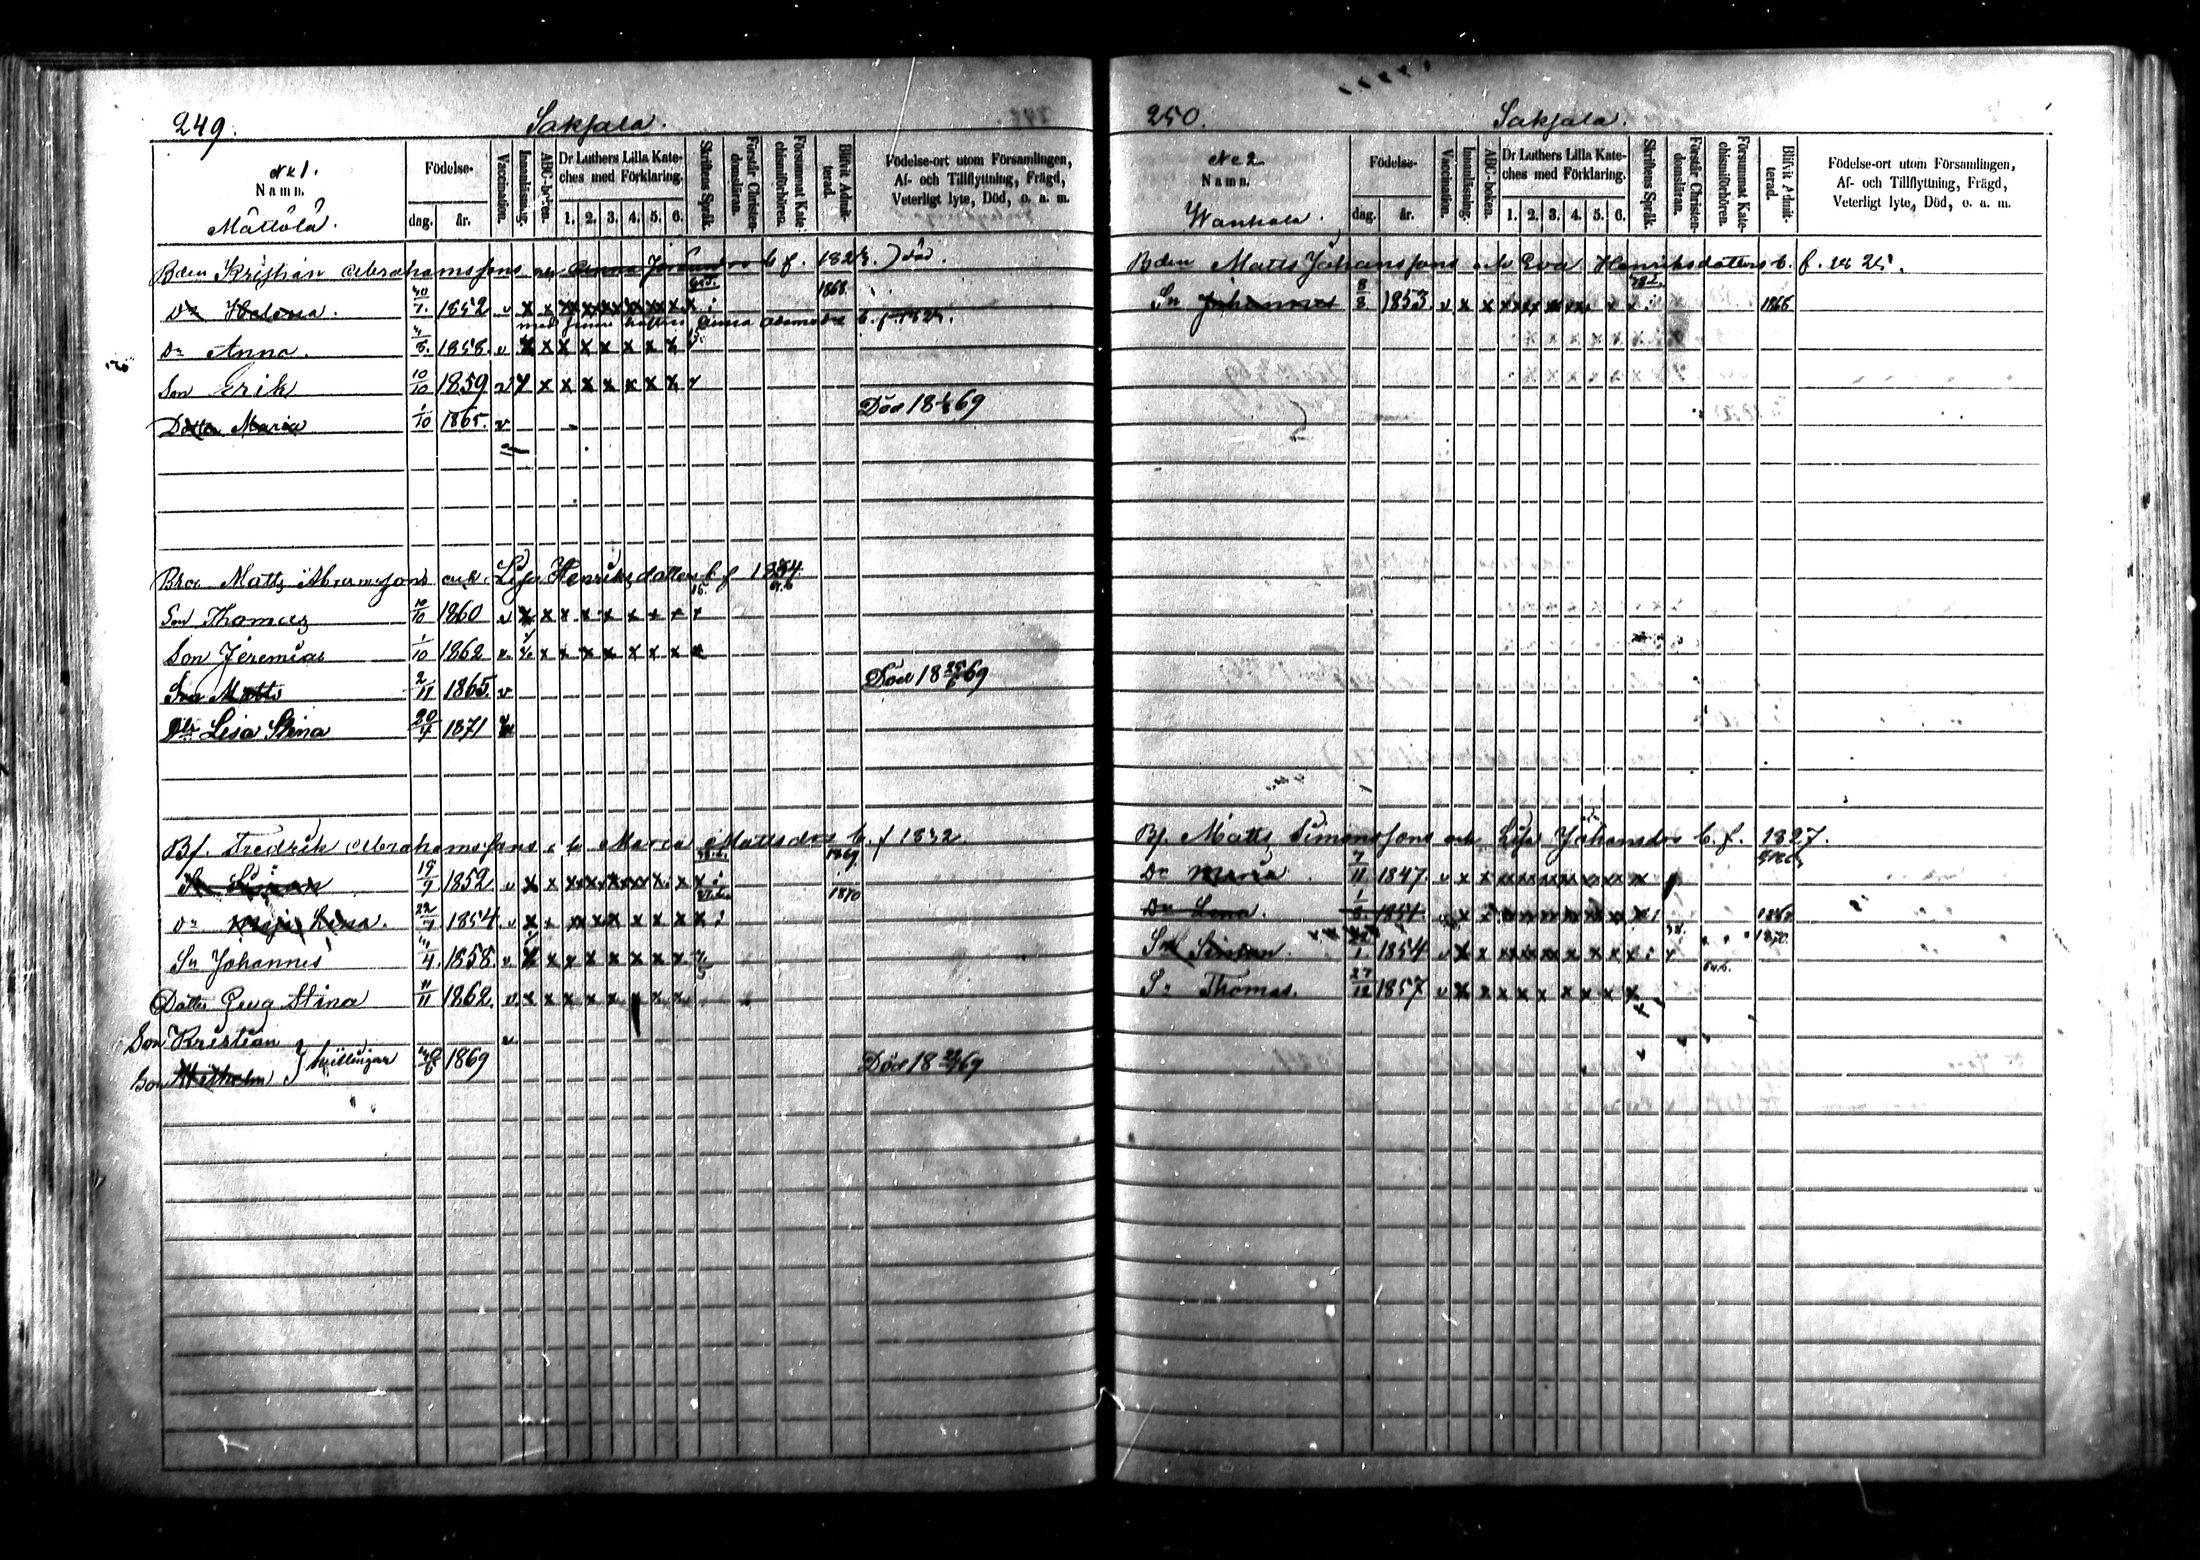 249.
Sakjala.
No 1.
Namn.
Mattola.
Födelse-
dag. år.
Vaccination.
Innanläsning.
ABC-boken.
Dr Luthers Lilla Kate-
ches med Förklaring.
1. 2. 3. 4. 5. 6.
Skriftens Språk.
Förstår Christen-
domsläran.
Försummat Kate-
chismiförhören.
Blifvit Admit-
terad.
Födelse-ort utom Församlingen,
Af- och Tillflyttning, Frägd,
Veterligt lyte, Död, o. a. m.
Bden Kristian Abrahamssons b. f. död.
Dr Helena. 1852 v x x x x x x x x x 1868.
med hustru Anna b. f.
Dr Anna. 1858. v x x x x x x x x
Son Erik 10/10 1859 v x x x x x x x x x
Dotter Maria 1/10 1865. v Död 18 69
Matts Abramssons och Lisa Henriksdotters b f 1834.
Son Thomas 10/10 1860 v x x x x x x x x x
Son Jeremias 1/10 1862 v x x x x x x x x x
Son Matts 2/11 1865 v Död 18 25/6 69
Dtr Lisa Stina 20/4 1871 v
Bf. Fredrik Abrahamssons o b Maria Mattsdrs b. f 1832.
Sn Simon 19/9 1852 v x x x x x x x x x 1869
Dr Maja Lena. 22/4 1854. v x x x x x x x x x 1870
Sn Johannes 1858. v x x x x x x x x
Dotter Greta Stina 11/11 1862. v x x x x x x x
Son Kristian v
Son Wilhelm } tvillingar 1869 Död 18 69
250.
Sakjala.
No 2
Namn.
Wanhala.
Födelse-
dag. år.
Vaccination.
Innanläsning.
ABC-boken.
Dr Luthers Lilla Kate-
ches med Förklaring.
1. 2. 3. 4. 5. 6.
Skriftens Språk.
Förstår Christen-
domsläran.
Försummat Kate-
chismiförhören.
Blifvit Admit-
terad.
Födelse-ort utom Församlingen,
Af- och Tillflyttning, Frägd,
Veterligt lyte, Död, o. a. m.
Bden Matts Johanssons och Eva Henriksdotters b. f. 1825.
Sn Johannes 8/8 1853 v x x x x x x x x
Bf. Matts Simonssons och Lisa Johansdrs b. f. 1827.
Dr Maria 7/11 1847. v x x x x x x x x x
Dr Lena. 1851 v x x x x x x x x x
Sn Simon. 1854 v x x x x x x x x x 1870.
Sn Thomas. 27/12 1857 v x x x x x x x x x